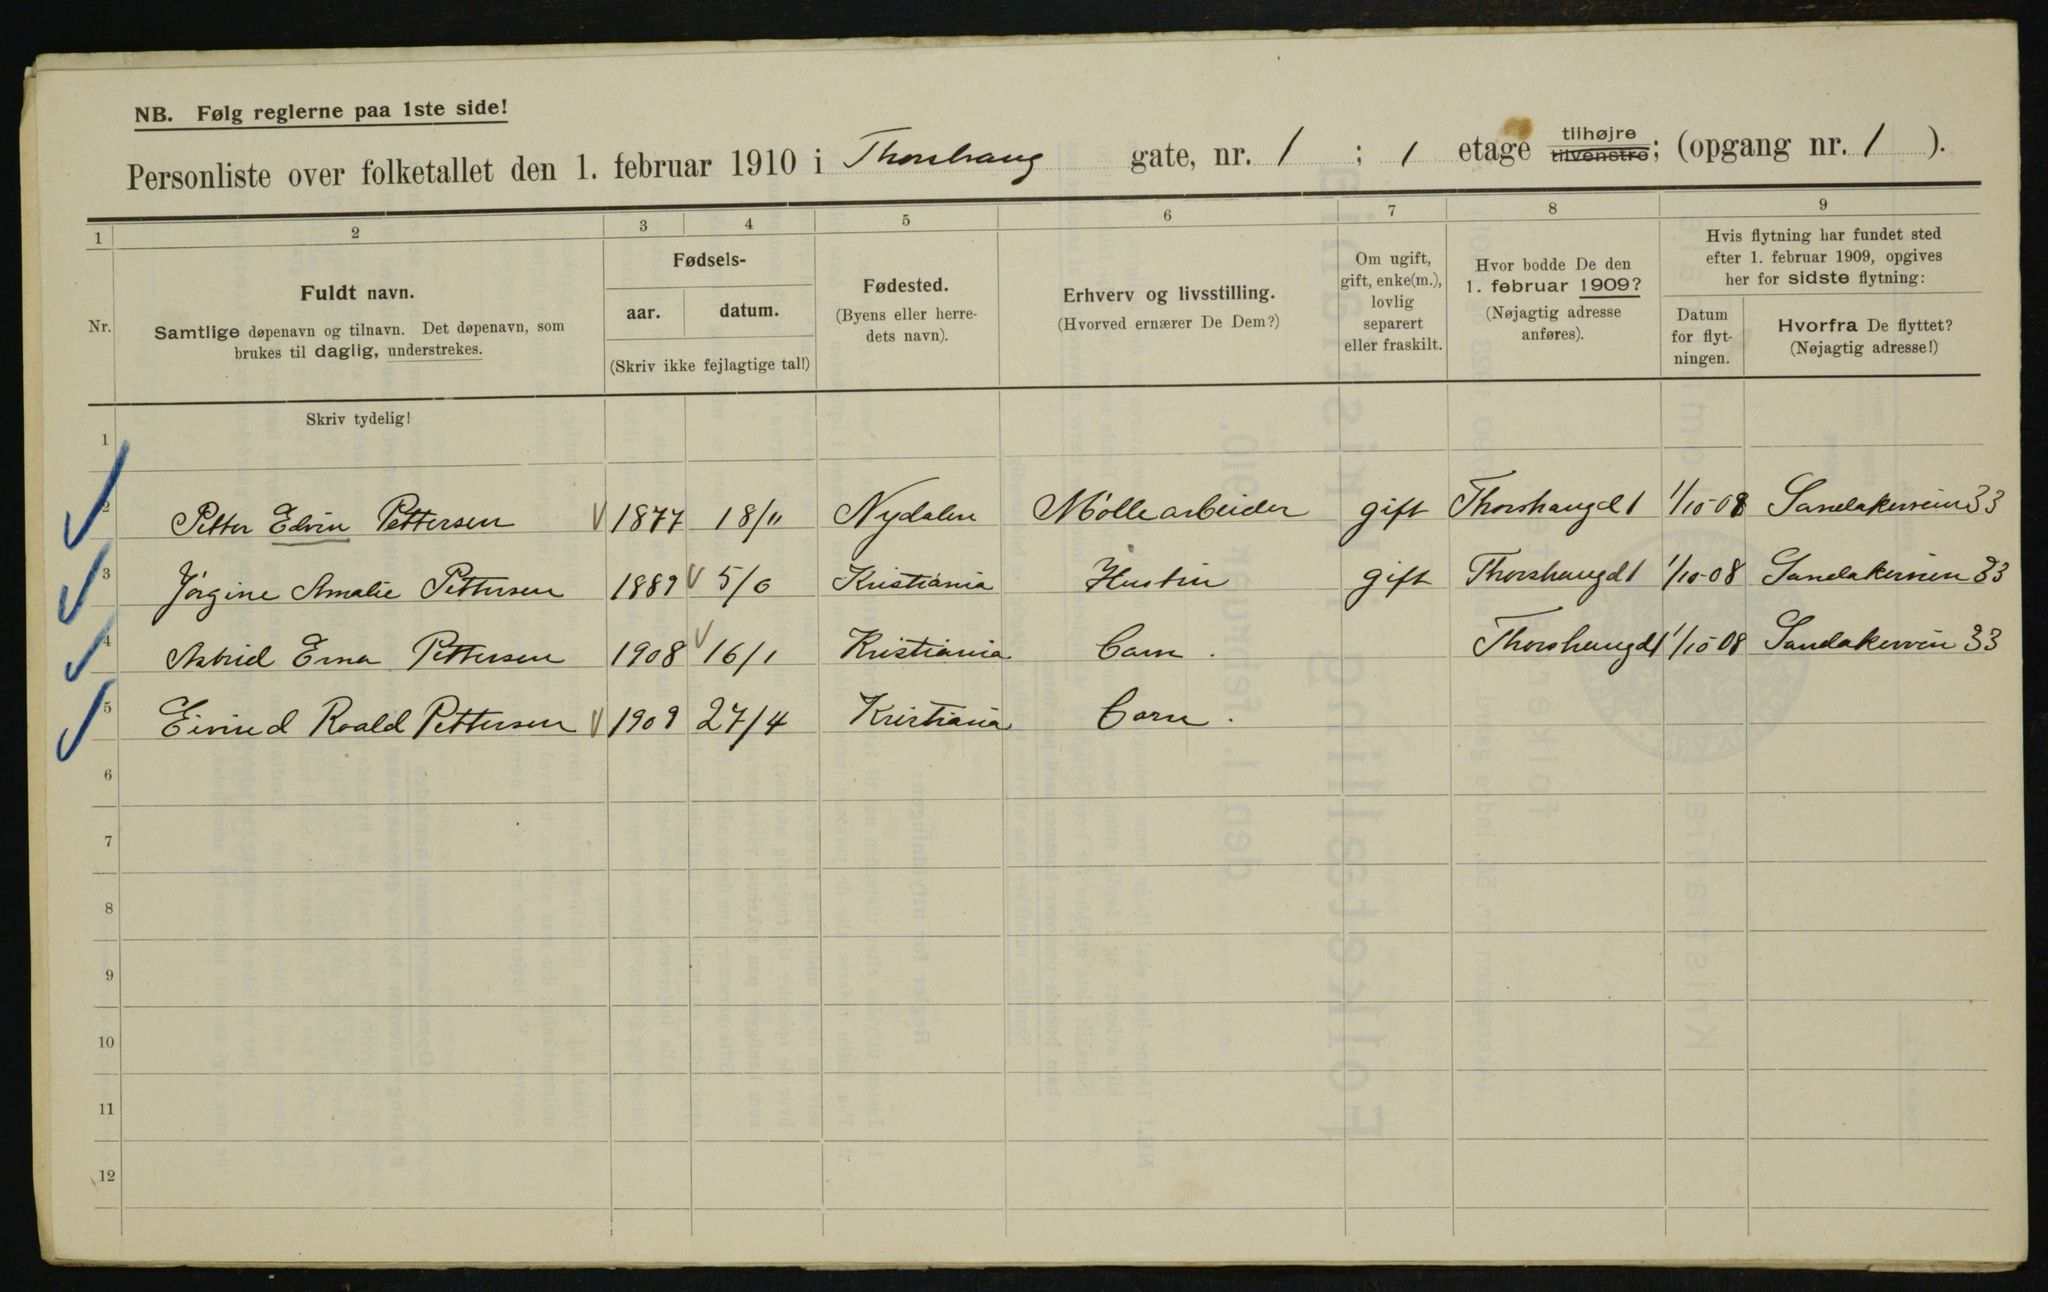 NB. Følg reglerne paa 1ste side!
Personliste over folketallet den 1. februar 1910 i Thorshaug gate, nr. 1 ; 1 etage tilhøjre tilvenstre; (opgang nr. 1 ).
1 2 3 4 5 6 7 8 9
Nr. Fuldt navn. Samtlige døpenavn og tilnavn. Det døpenavn, som brukes til daglig, understrekes.
Fødsels- aar. datum. (Skriv ikke fejlagtige tal!)
Fødested. (Byens eller herredets navn).
Erhverv og livsstilling. (Hvorved ernærer De Dem?)
Om ugift, gift, enke(m.), lovlig separert eller fraskilt.
Hvor bodde De den 1. februar 1909? (Nøjagtig adresse anføres).
Hvis flytning har fundet sted efter 1. februar 1909, opgives her for sidste flytning:
Datum for flytningen. Hvorfra De flyttet? (Nøjagtig adresse!)
Skriv tydelig!
1
2 Petter Edvin Pettersen 1877 18/11 Nydalen Møllearbeider gift Thorshaugd 1 1/10-08 Sandakerveien 33
3 Jørgine Amalie Pettersen 1889 5/6 Kristiania Hustru gift Thorshaugd 1 1/10-08 Sandakerveien 33
4 Astrid Erna Pettersen 1908 16/1 Kristiania Barn. Thorshaugd 1 1/10-08 Sandakerveien 33
5 Eivind Roald Pettersen 1909 27/4 Kristiania Barn.
6
7
8
9
10
11
12